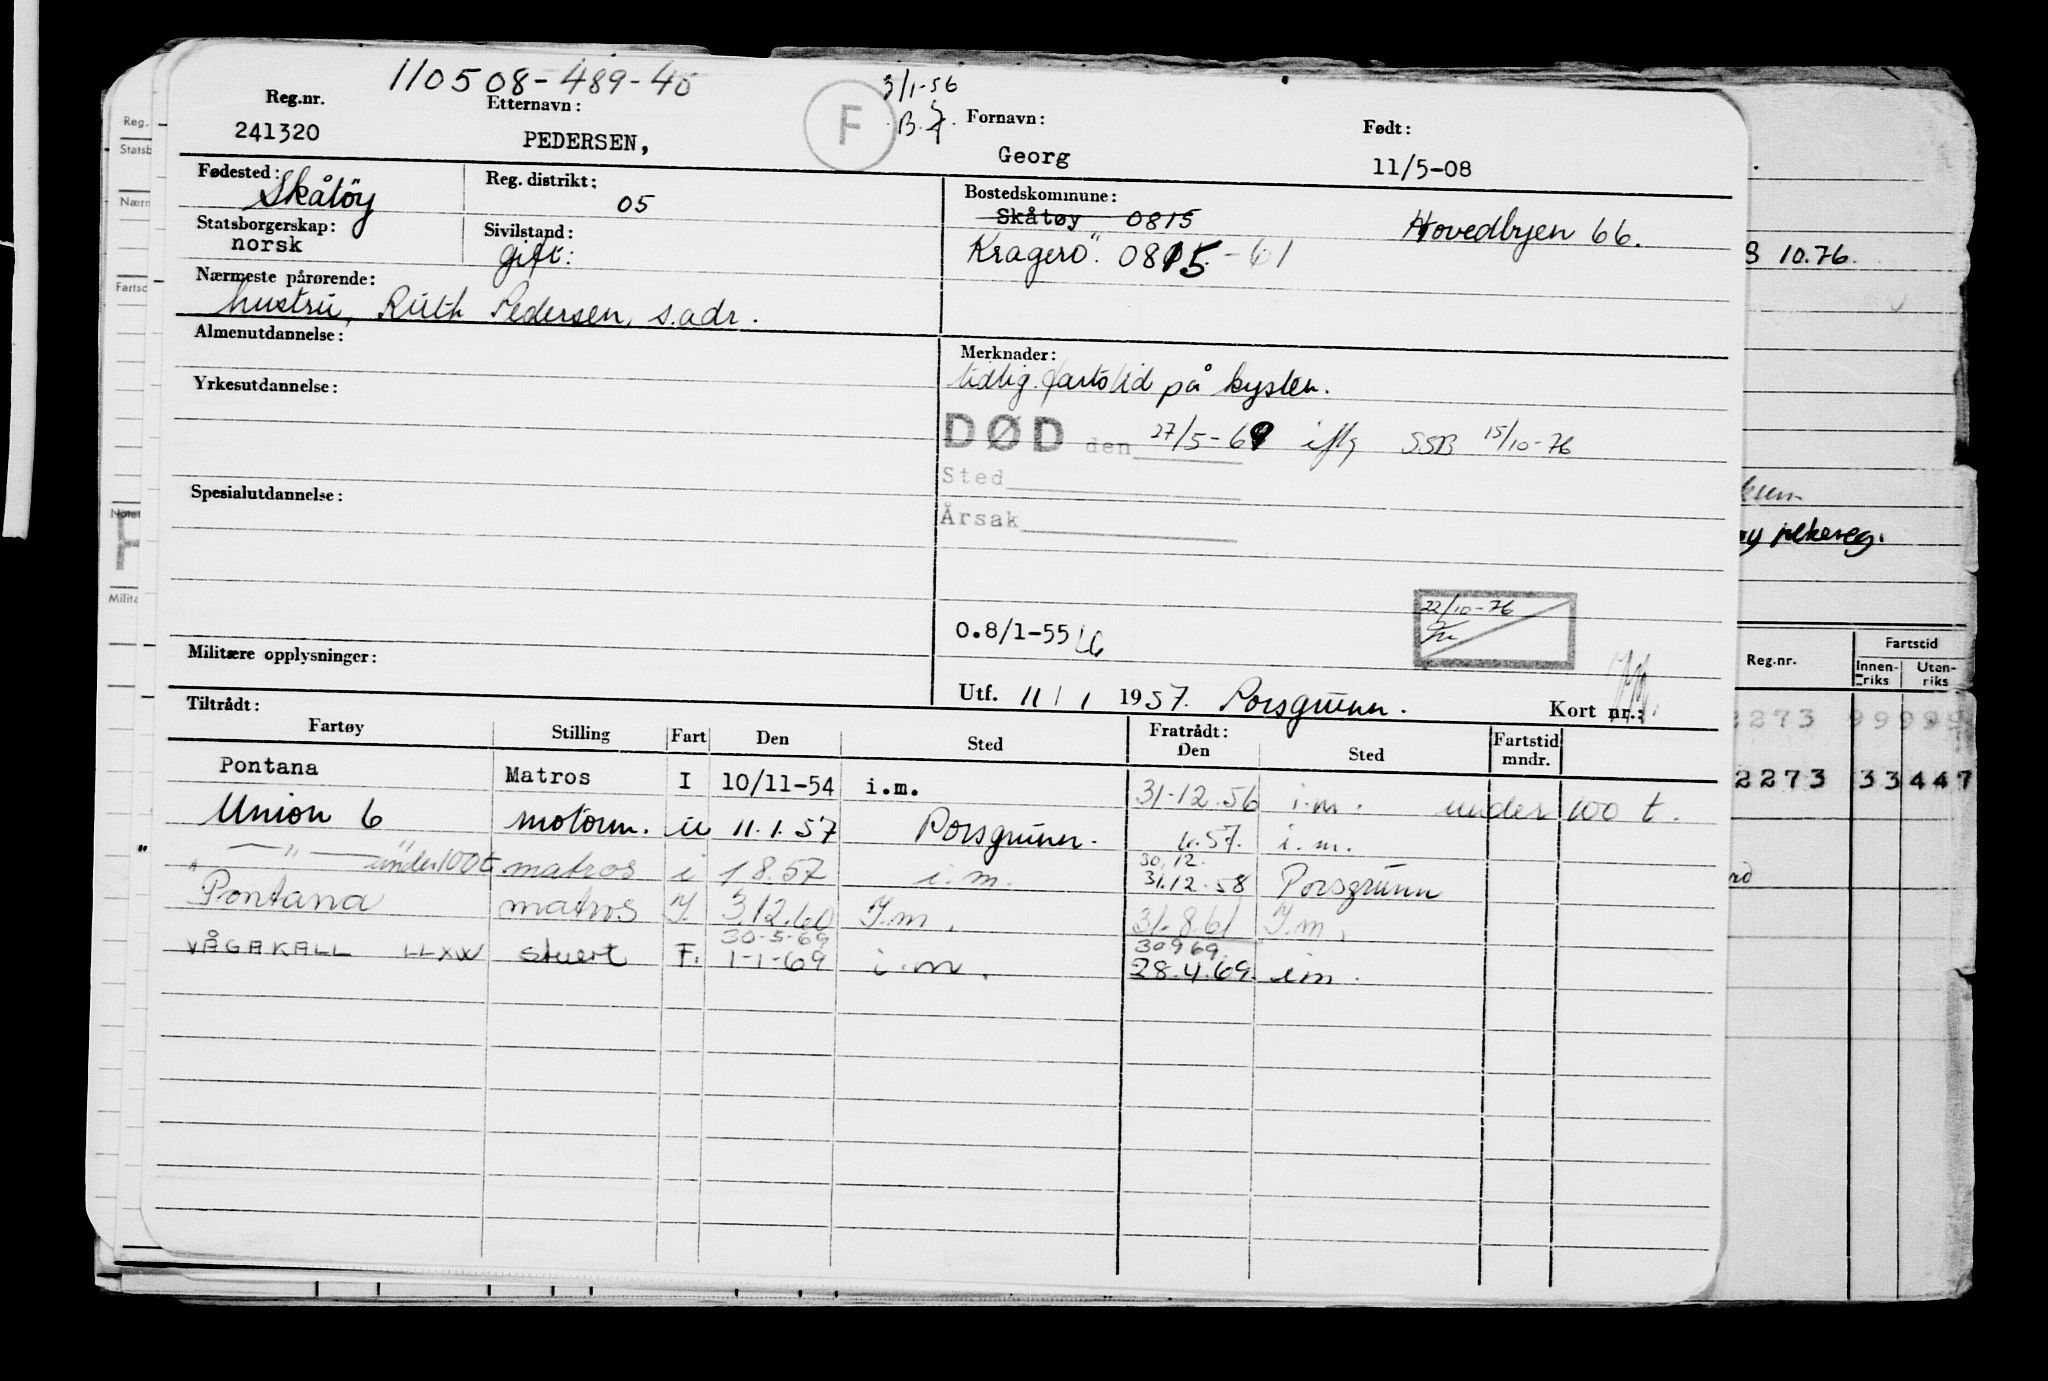 110508-489-40
3/1-56
Reg.nr.
Etternavn:
F
B.
Fornavn:
Født:
241320
PEDERSEN,
Georg
11/5-08
Fødested:
Skåtöy
Reg. distrikt:
05
Bostedskommune:
Skåtøy 0815
Hovedbyen 66.
Statsborgerskap:
norsk
Sivilstand:
gift.
Kragerö. 0815-61
Nærmeste pårørende:
hustru, Ruth Pedersen, s.adr.
Almenutdannelse:
Merknader:
tidlig. fartstid på kysten.
Yrkesutdannelse:
DØD den 27/5-69 iflg SSB 15/10-76
Sted
Spesialutdannelse:
Årsak
22/10-76
0.8/1-55
Militære opplysninger:
Utf. 11/1 1957. Porsgrunn.
Kort nr.:
Tiltrådt:
Fratrådt:
Fartøy Stilling Fart Den Sted Den Sted Fartstid mndr.
Pontana Matros I 10/11-54 i.m. 31.12.56 i.m. under 100 t.
Union 6 motorm. u 11.1.57 Porsgrunn. .57. i.m.
30.12.
— " — under 100t matros i 1 8.57 i.m. 31.12.58 Porsgrunn
Pontana matros I. 3.12.60 I.m. 31.8.61 I.m.
30-5-69 30 9 69
VÅGAKALL LLXW stuert F. 1-1-69 i.m. 28.4.69. i.m.
Reg.
Statsb
Nærn
Fartsc
Notat
Milita
3 10.76.
pekereg.
Reg.nr.
Fartstid
Innen-
riks
Utan-
riks
2273 99999
2273 33447